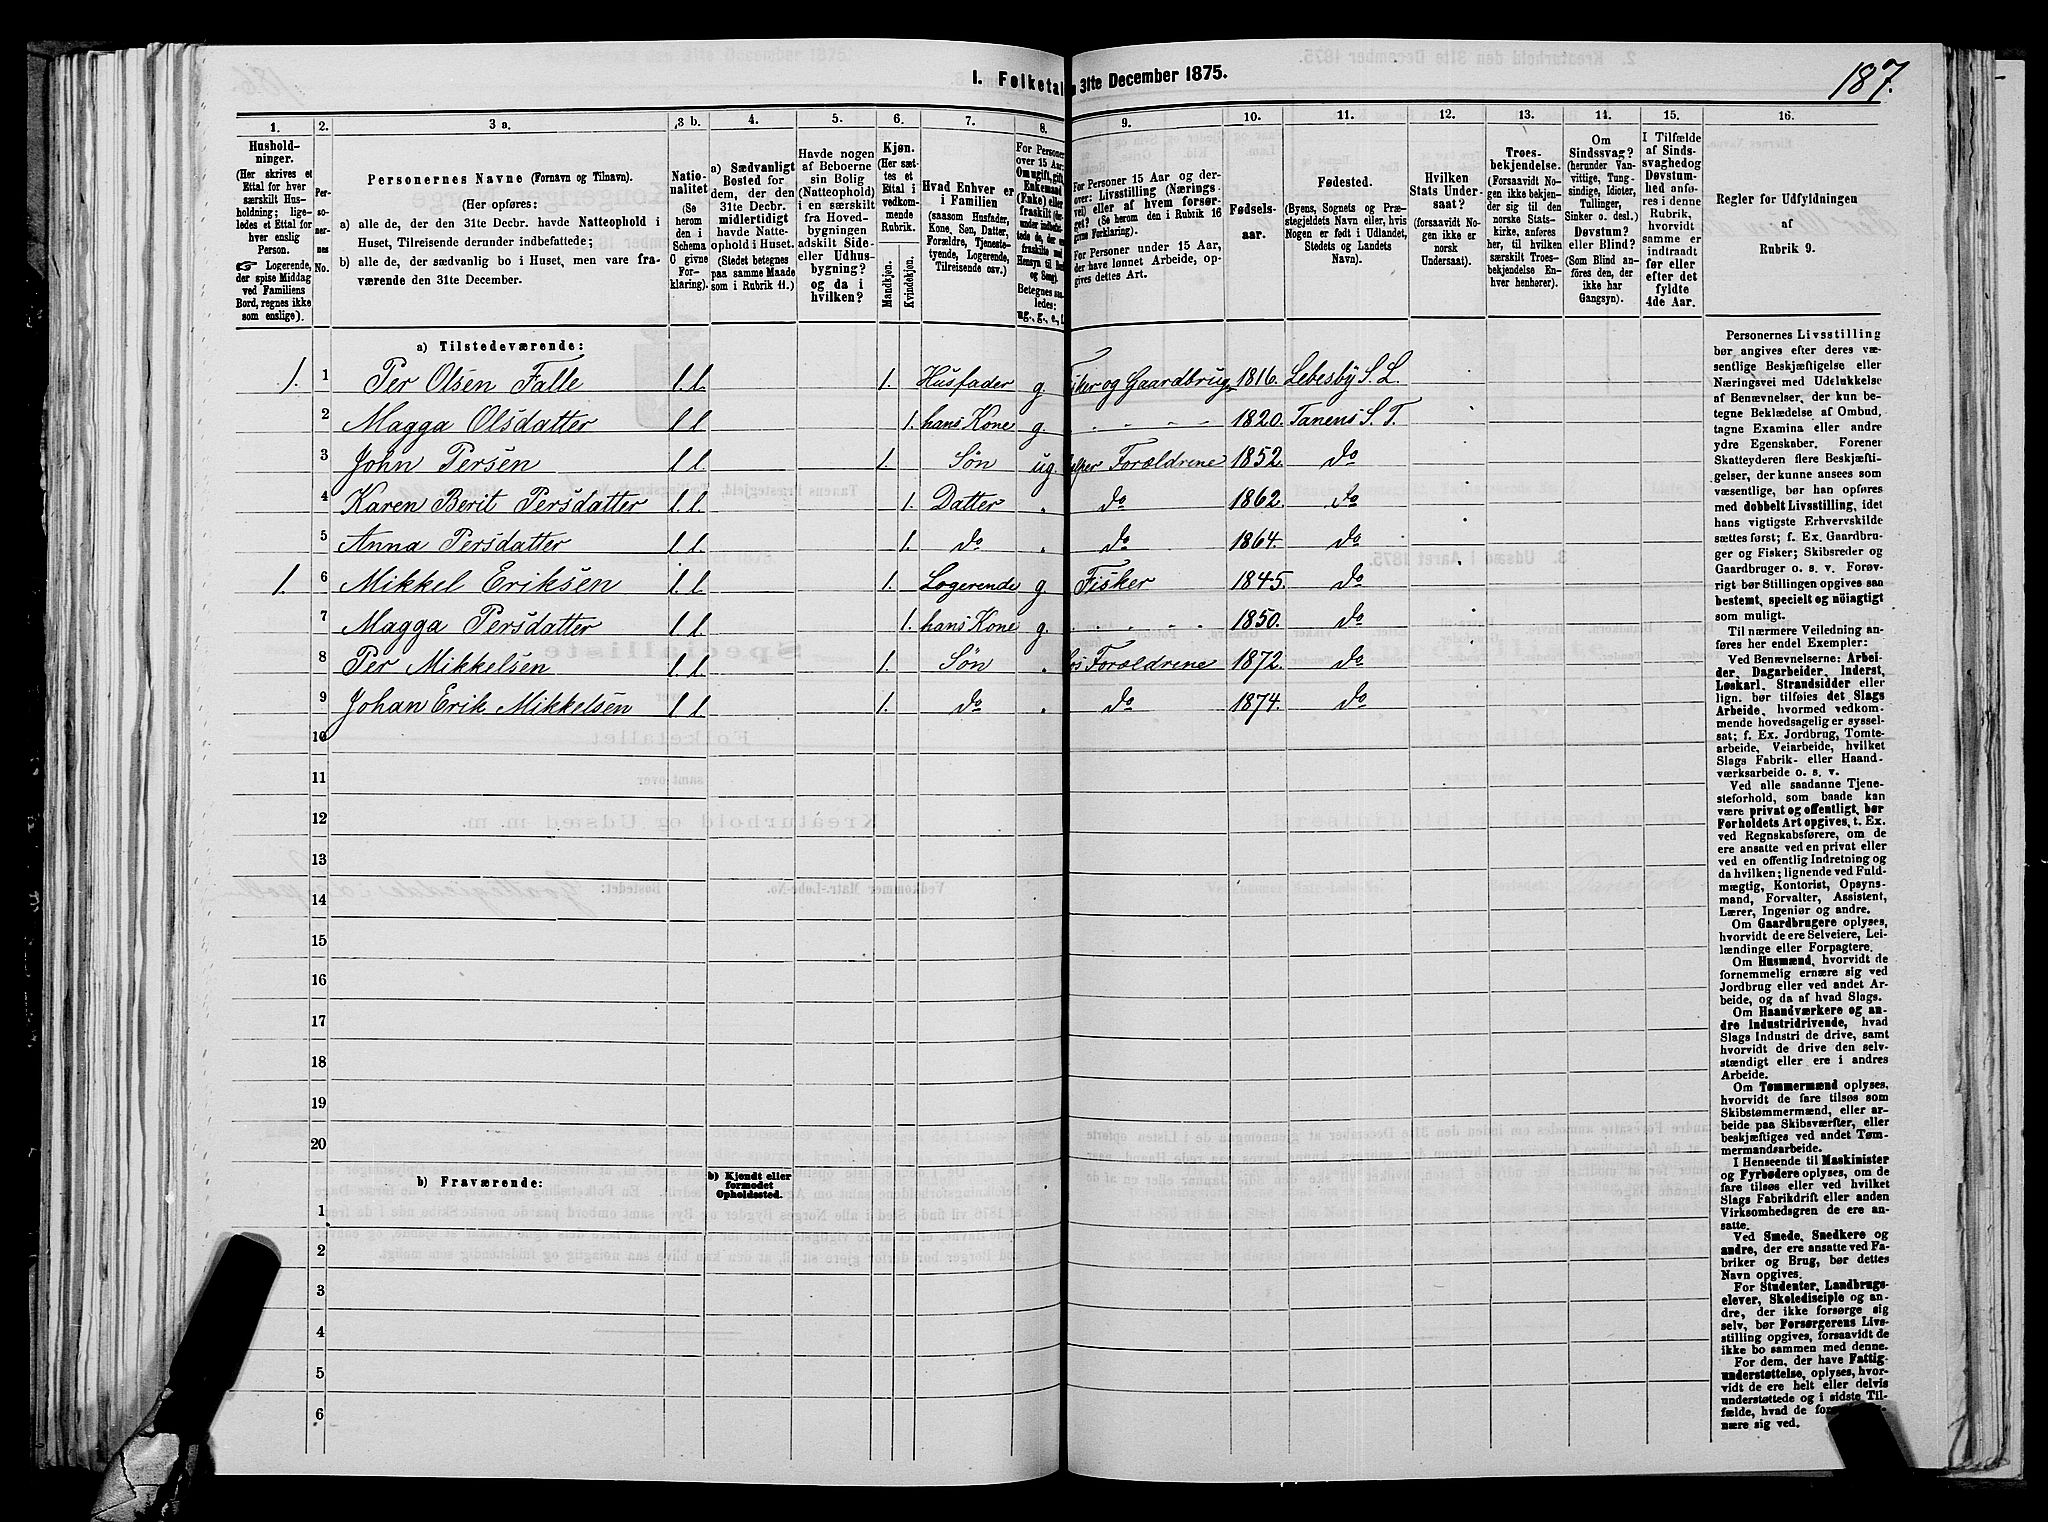 187.
I. Folketal
n 31te December 1875.
1.
2.
3 a.
3 b.
4.
5.
6.
7.
8.
9.
10.
11.
12.
13.
14.
15.
16.
Hushold-
ninger.
(Her skrives et
Ettal for hver
særskilt Hus-
holdning; lige-
ledes et Ettal for
hver enslig
Person.
☞ Logerende,
der spise Middag
ved Familiens
Bord, regnes ikke
som enslige).
Per-
so-
ner-
nes
No.
Personernes Navne (Fornavn og Tilnavn).
(Her opføres:
a) alle de, der den 31te Decbr. havde Natteophold i
Huset, Tilreisende derunder indbefattede;
b) alle de, der sædvanlig bo i Huset, men vare fra-
værende den 31te December.
Natio-
nalitet
(Se
herom
den i
Schema
G givne
For-
klaring).
a) Sædvanligt
Bosted for
dem, der den
31te Decbr.
midlertidigt
havde Natte-
ophold i Huset.
(Stedet betegnes
paa samme Maade
som i Rubrik 11.)
Havde nogen
af Beboerne
sin Bolig
(Natteophold)
i en særskilt
fra Hoved-
bygningen
adskilt Side-
eller Udhus-
bygning?
og da i
hvilken?
Kjøn.
(Her sæt-
tes et
Ettal i
vedkom-
mende
Rubrik.
Mandkjøn.
Kvindekjøn.
Hvad Enhver er
i Familien
(saasom Husfader,
Kone, Søn, Datter,
Forældre, Tjeneste-
tyende, Logerende,
Tilreisende osv.)
For Personer
over 15 Aar:
Om ugift, gift,
Enkemand
(Enke) eller
fraskilt
Betegnes saa-
ledes:
ug., g., e.,
For Personer 15 Aar og der-
over: Livsstilling (Nærings-
vei) eller af hvem forsør-
get? (Se herom den i Rubrik 16
givne Forklaring).
For Personer under 15 Aar,
der have lønnet Arbeide, op-
gives dettes Art.
Fødsels-
aar.
Fødested.
(Byens, Sognets og Præ-
stegjeldets Navn eller, hvis
Nogen er født i Udlandet,
Stedets og Landets
Navn).
Hvilken
Stats Under-
saat?
(forsaavidt No-
gen ikke er
norsk
Undersaat).
Troes-
bekjendelse.
(Forsaavidt No-
gen ikke bekjen-
der sig til den
norske Stats-
kirke, anføres
her, til hvilken
særskilt Troes-
bekjendelse En-
hver henhører).
Om
Sindssvag?
(herunder Van-
vittige, Tung-
sindige, Idioter,
Tullinger,
Sinker o. desl.)
Døvstum?
eller Blind?
(Som Blind an-
føres den, der
ikke har
Gangsyn).
I Tilfælde
af Sinds-
svaghedog
Døvstum-
hed anfø-
res i denne
Rubrik,
hvorvidt
samme er
indtraadt
før eller
efter det
fyldte
4de Aar.
Regler for Udfyldningen
af
Rubrik 9.
a) Tilstedeværende:
1. 1 Per Olsen Falle l.l. 1. Husfader g. Fisker og Gaardbrug 1816. Lebesby S. L.
2 Magga Olsdatter l.l 1. hans Kone g. 1820. Tanens S. T.
3 John Persen l.l. 1. Søn ug. Forældrene 1852. do
4 Karen Berit Persdatter l.l. 1. Datter „ do 1862. do
5 Anna Persdatter l.l. 1. do „ do 1864. do
1. 6 Mikkel Eriksen l.l. 1. Logerende g. Fisker 1845. do
7 Magga Persdatter l.l. 1. hans Kone g. 1850. do
8 Per Mikkelsen l.l. 1. Søn „ Hos Forældrene 1872. do
9 Johan Erik Mikkelsen l.l. 1. do „ do 1874. do
10
11
12
13
14
15
16
17
18
19
20
b) Fraværende:
b) Kjendt eller
formodet
Opholdssted.
1
2
3
4
5
6
Personernes Livsstilling
bør angives efter deres væ-
sentlige Beskjæftigelse eller
Næringsvei med Udelukkelse
af Benævnelser, der kun be-
tegne Beklædelse af Ombud,
tagne Examina eller andre
ydre Egenskaber. Forener
Skatteyderen flere Beskjæfti-
gelser, der kunne ansees som
væsentlige, bør han opføres
med dobbelt Livsstilling, idet
hans vigtigste Erhvervskilde
sættes først; f. Ex. Gaardbru-
ger og Fisker; Skibsreder og
Gaardbruger o. s. v. Forøv-
rigt bør Stillingen opgives saa
bestemt, specielt og nöiagtigt
som muligt.
Til nærmere Veiledning an-
føres her endel Exempler:
Ved Benævnelserne: Arbei-
der, Dagarbeider, Inderst,
Løskarl, Strandsidder eller
lign. bør tilføies det Slags
Arbeide, hvormed vedkom-
mende hovedsagelig er syssel-
sat; f. Ex. Jordbrug, Tomte-
arbeide, Veiarbeide, hvilket
Slags Fabrik- eller Haand-
værksarbeide o. s. v.
Ved alle saadanne Tjene-
steforhold, som baade kan
være privat og offentligt, bør
Forholdets Art opgives, t. Ex.
ved Regnskabsførere, om de
ere ansatte ved en privat eller
ved en offentlig Indretning og
da hvilken; lignende ved Fuld-
mægtig, Kontorist, Opsyns-
mand, Forvalter, Assistent,
Lærer, Ingeniør og andre.
Om Gaardbrugere oplyses,
hvorvidt de ere Selveiere, Lei-
lændinge eller Forpagtere.
Om Husmænd, hvorvidt de
fornemmelig ernære sig ved
Jordbrug eller ved andet Ar-
beide, og da af hvad Slags.
Om Haandværkere og an-
dre Industridrivende, hvad
Slags Industri de drive, samt
hvorvidt de drive den selv-
stændigt eller ere i andres
Arbeide.
Om Tømmermænd oplyses,
hvorvidt de fare tilsøs som
Skibstømmermænd, eller ar-
beide paa Skibsværfter, eller
beskjæftiges ved andet Tøm-
mermandsarbeide.
I Henseende til Maskinister
og Fyrbødere oplyses, om de
fare tilsøs eller ved hvilket
Slags Fabrikdrift eller anden
Virksomhedsgren de ere an-
satte.
Ved Smede, Snedkere og
andre, der ere ansatte ved Fa-
briker og Brug, bør dettes
Navn opgives.
For Studenter, Landbrugs-
elever, Skoledisciple og an-
dre, der ikke forsørge sig
selv, bør Forsørgerens Livs-
stilling opgives, forsaavidt de
ikke bo sammen med denne.
For dem, der have Fattig-
understøttelse, oplyses, hvor-
vidt de ere helt eller delvis
understøttede og i sidste Til-
fælde, hvad de
nære sig ved.